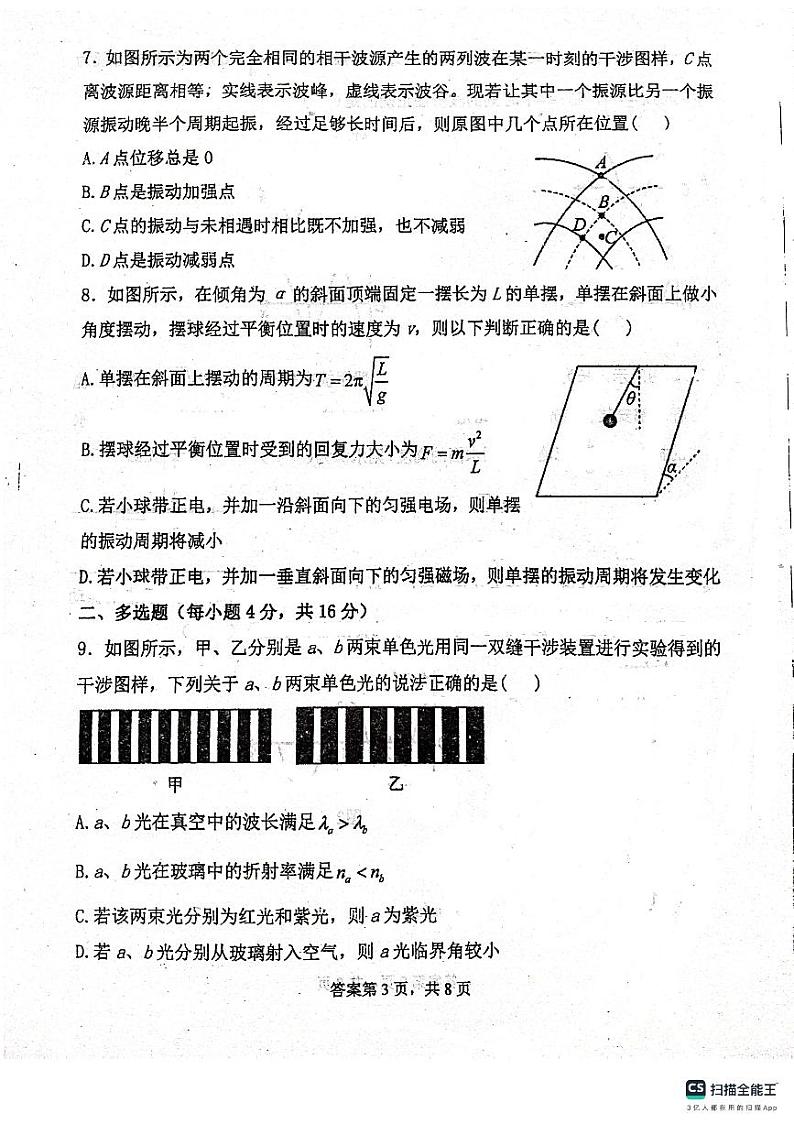 7. 如图所示为两个完全相同的相干波源产生的两列波在某一时刻的干涉图样，C点
离波源距离相等；实线表示波峰，虚线表示波谷。现若让其中一个振源比另一个振
源振动晚半个周期起振，经过足够长时间后，则原图中几个点所在位置( )
A. A点位移总是0
B. B点是振动加强点
C. C点的振动与未相遇时相比既不加强，也不减弱
D. D点是振动减弱点
A
B
D
C
8. 如图所示，在倾角为 α 的斜面顶端固定一摆长为 L 的单摆，单摆在斜面上做小
角度摆动，摆球经过平衡位置时的速度为 v，则以下判断正确的是( )
A. 单摆在斜面上摆动的周期为T=2π√(L/g)
B. 摆球经过平衡位置时受到的回复力大小为F=m v²/L
θ
α
C. 若小球带正电，并加一沿斜面向下的匀强电场，则单摆
的振动周期将减小
D. 若小球带正电，并加一垂直斜面向下的匀强磁场，则单摆的振动周期将发生变化
二、多选题（每小题4分，共16分）
9. 如图所示，甲、乙分别是 a、b 两束单色光用同一双缝干涉装置进行实验得到的
干涉图样，下列关于 a、b 两束单色光的说法正确的是( )
甲 乙
A. a、b 光在真空中的波长满足λa>λb
B. a、b 光在玻璃中的折射率满足na<nb
C. 若该两束光分别为红光和紫光，则 a 为紫光
D. 若 a、b 光分别从玻璃射入空气，则 a 光临界角较小
答案第3页，共8页
CS 扫描全能王
3亿人都在用的扫描App